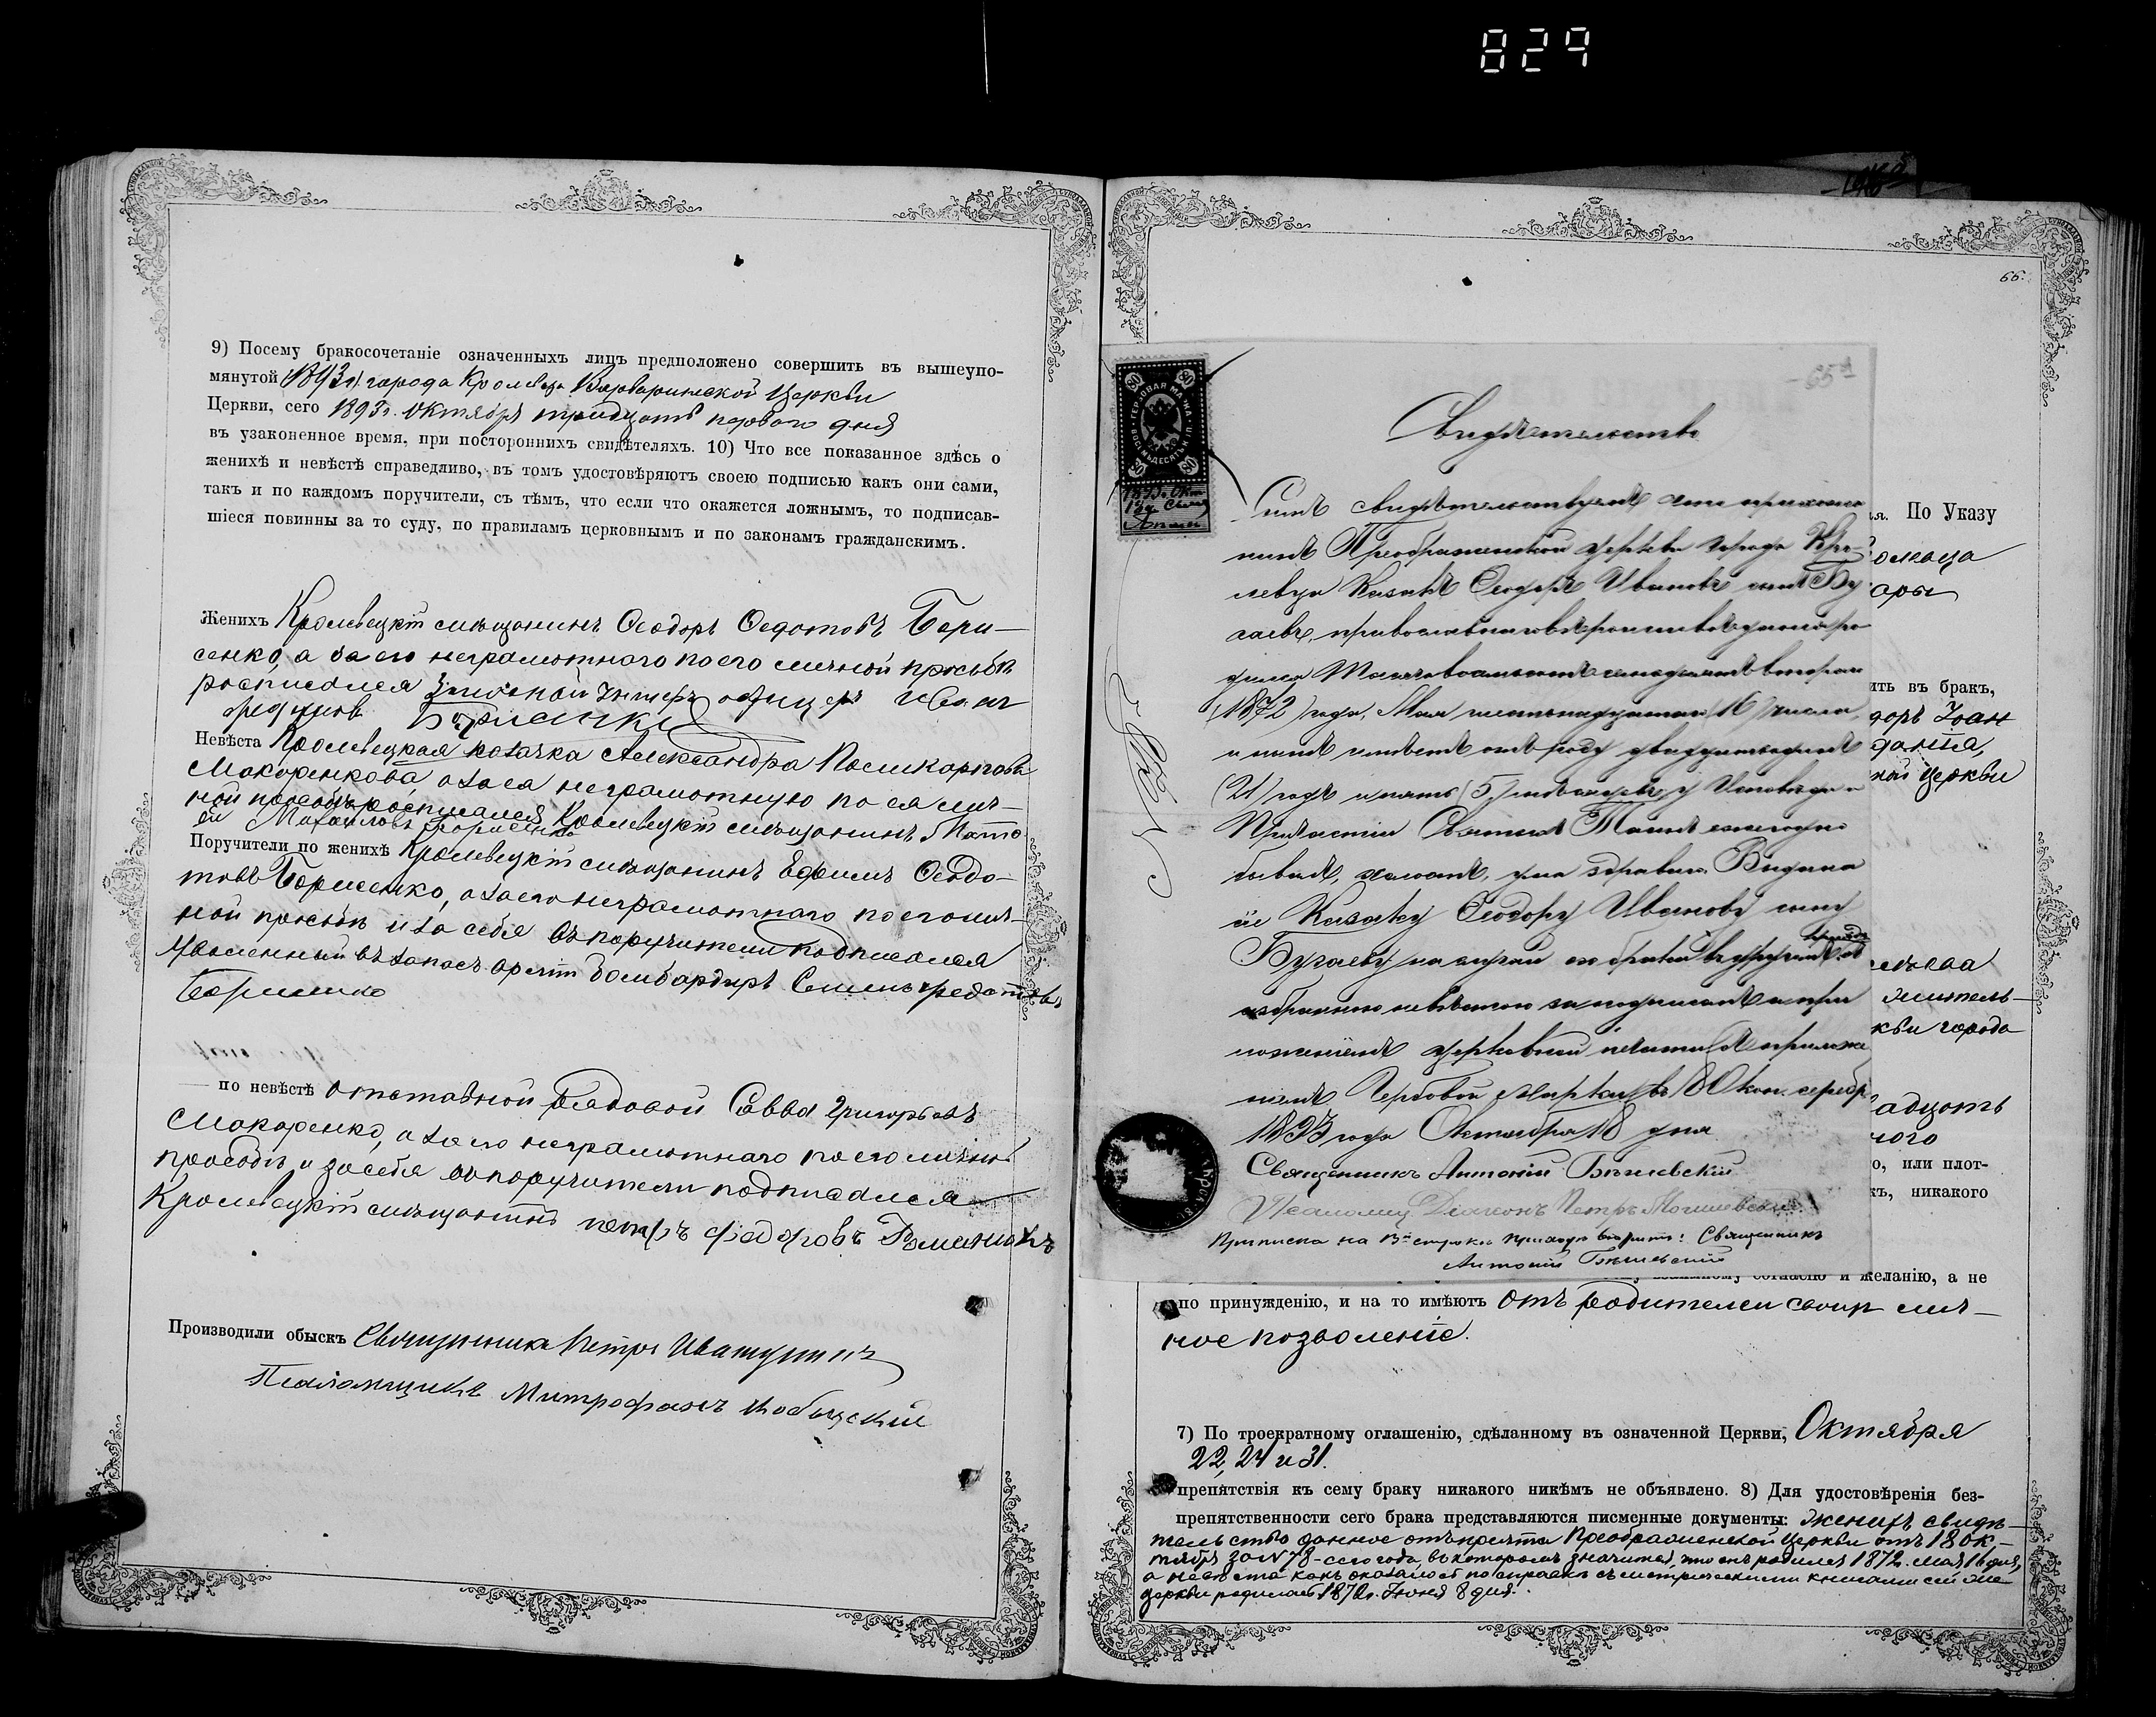 829
9) Посему бракосочетаніе означенныхъ лицъ предположено совершить въ вышеупо-
мянутой города Кролевца Варваринской Церкви
Церкви, сего 1893 г. Октября тридцать перваго дня
въ узаконенное время, при постороннихъ свидѣтеляхъ. 10) Что все показанное здѣсь о
женихѣ и невѣстѣ справедливо, въ томъ удостовѣряютъ своею подписью какъ они сами,
такъ и по каждомъ поручители, съ тѣмъ, что если что окажется ложнымъ, то подписав-
шіеся повинны за то суду, по правиламъ церковнымъ и по законамъ гражданскимъ.
Женихъ Кролевецкій мѣщанинъ Ѳеодоръ Ѳедотовъ Бори-
сенко, а за его неграмотнаго по его личной прозьбѣ
росписался унтеръ офицеръ Иванъ
Невѣста Кролевецкая козачка Александра Поликарпова
Макоренкова, а за ея неграмотную по ея лич-
ной прозьбѣ росписался Кролевецкій мѣщанинъ
Михайловъ Борисенко
Поручители по женихѣ Кролевецкій мѣщанинъ Ефимъ Ѳедо-
товъ Борисенко, а за его неграмотнаго по его лич-
ной прозьбѣ и за себя въ поручители подписался
уволенный въ запасъ арміи бомбардиръ Семенъ Федотовъ
Борисенко
по невѣстѣ отставной рядовой Савва Григорьевъ
Макоренко, а за его неграмотнаго по его личной
прозьбѣ и за себя въ поручители подписался
Кролевецкій мѣщанинъ петръ федоровъ Романюкъ
Производили обыскъ Священникъ Петръ
Псаломщикъ Митрофанъ
66.
65а
ГЕРБОВАЯ МАРКА
ВОСЕМЬДЕСЯТЪ К.
80 80
80 80
1893 г. Окт
18 д.
№ 78
Свидѣтельство
Симъ свидѣтельствуемъ что прихожа
нинъ Преображенской церкви города Кро-
левца Казакъ Ѳеодоръ Ивановъ сынъ Бу
гаевъ, православнаго вѣроисповѣданія ро
дился Тысяча восемьсотъ семьдесятъ втораго
(1872) года, Мая шестнадцатаго (16) числа,
и нынѣ имѣетъ отъ роду двадцать одинъ
(21) годъ и пять (5) мѣсяцевъ, у Исповѣди и
Причастія Святыхъ Таинъ ежегодно
бываетъ, холостъ, ума здраваго. Выдано
сіе Казаку Ѳеодору Иванову сыну
Бугаеву на случай его брака въ другомъ приходѣ съ
избранною невѣстою за подписаніемъ и при
ложеніемъ церковной печати съ приложе
ніемъ Гербовой марки въ 80 коп. серебр
1893 года Октября 18 дня
Священникъ Антоній Бѣлевскій
Псаломщ Діаконъ Петръ Могилевскій
Приписка на 13й строкѣ приходѣ вѣрить: Священникъ
Антоній Бѣлевскій
ія. По Указу
ить въ брак,
доръ Іоан
ной церкви
житель-
кви города
адцать
ого
о, или плот-
къ, никакого
согласію и желанію, а не
по принужденію, и на то имѣютъ отъ родителей своихъ лич-
ное позволеніе.
7) По троекратному оглашенію, сдѣланному въ означенной Церкви, Октября
22, 24 и 31.
препятствія къ сему браку никакого никѣмъ не объявлено. 8) Для удостовѣренія без-
препятственности сего брака представляются писменные документы: женихъ свидѣ-
тельство данное отъ причта Преображенской церкви отъ 18 ок-
тября за № 78 сего года, въ которомъ значится, что онъ родился 1872 г. мая 16 дня,
а невѣста какъ оказалось по справкѣ съ метрическими книгами сей же
церкви родилась 1872 г. Іюня 8 дня.